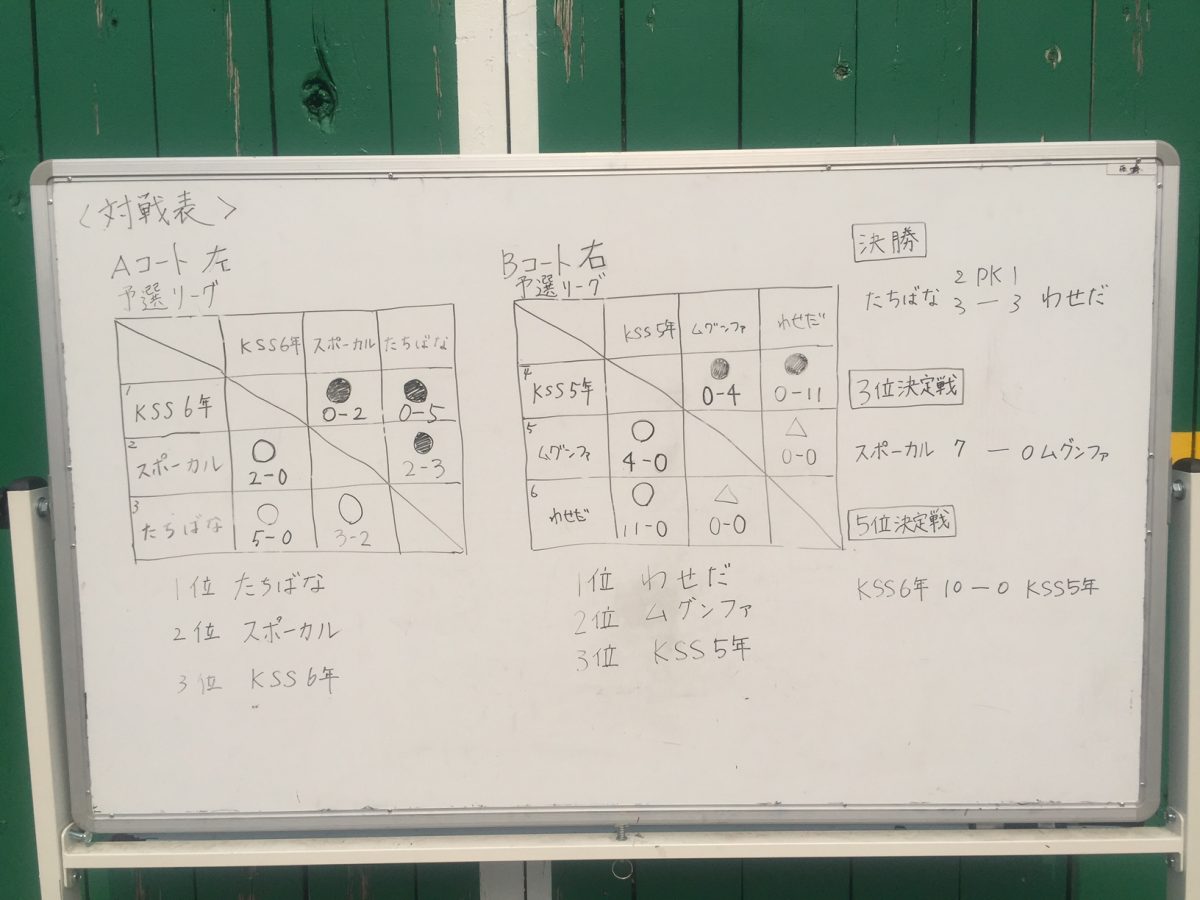 〈対戦表〉
Aコート 左
予選リーグ
KSS6年 スポーカル たちばな
1 KSS6年 ● 0-2 ● 0-5
2 スポーカル ○ 2-0 ● 2-3
3 たちばな ○ 5-0 ○ 3-2
1位 たちばな
2位 スポーカル
3位 KSS6年
Bコート 右
予選リーグ
KSS5年 ムグンファ わせだ
4 KSS5年 ● 0-4 ● 0-11
5 ムグンファ ○ 4-0 △ 0-0
6 わせだ ○ 11-0 △ 0-0
1位 わせだ
2位 ムグンファ
3位 KSS5年
決勝
2 PK 1
たちばな 3 ー 3 わせだ
3位決定戦
スポーカル 7 ー 0 ムグンファ
5位決定戦
KSS6年 10 ー 0 KSS5年